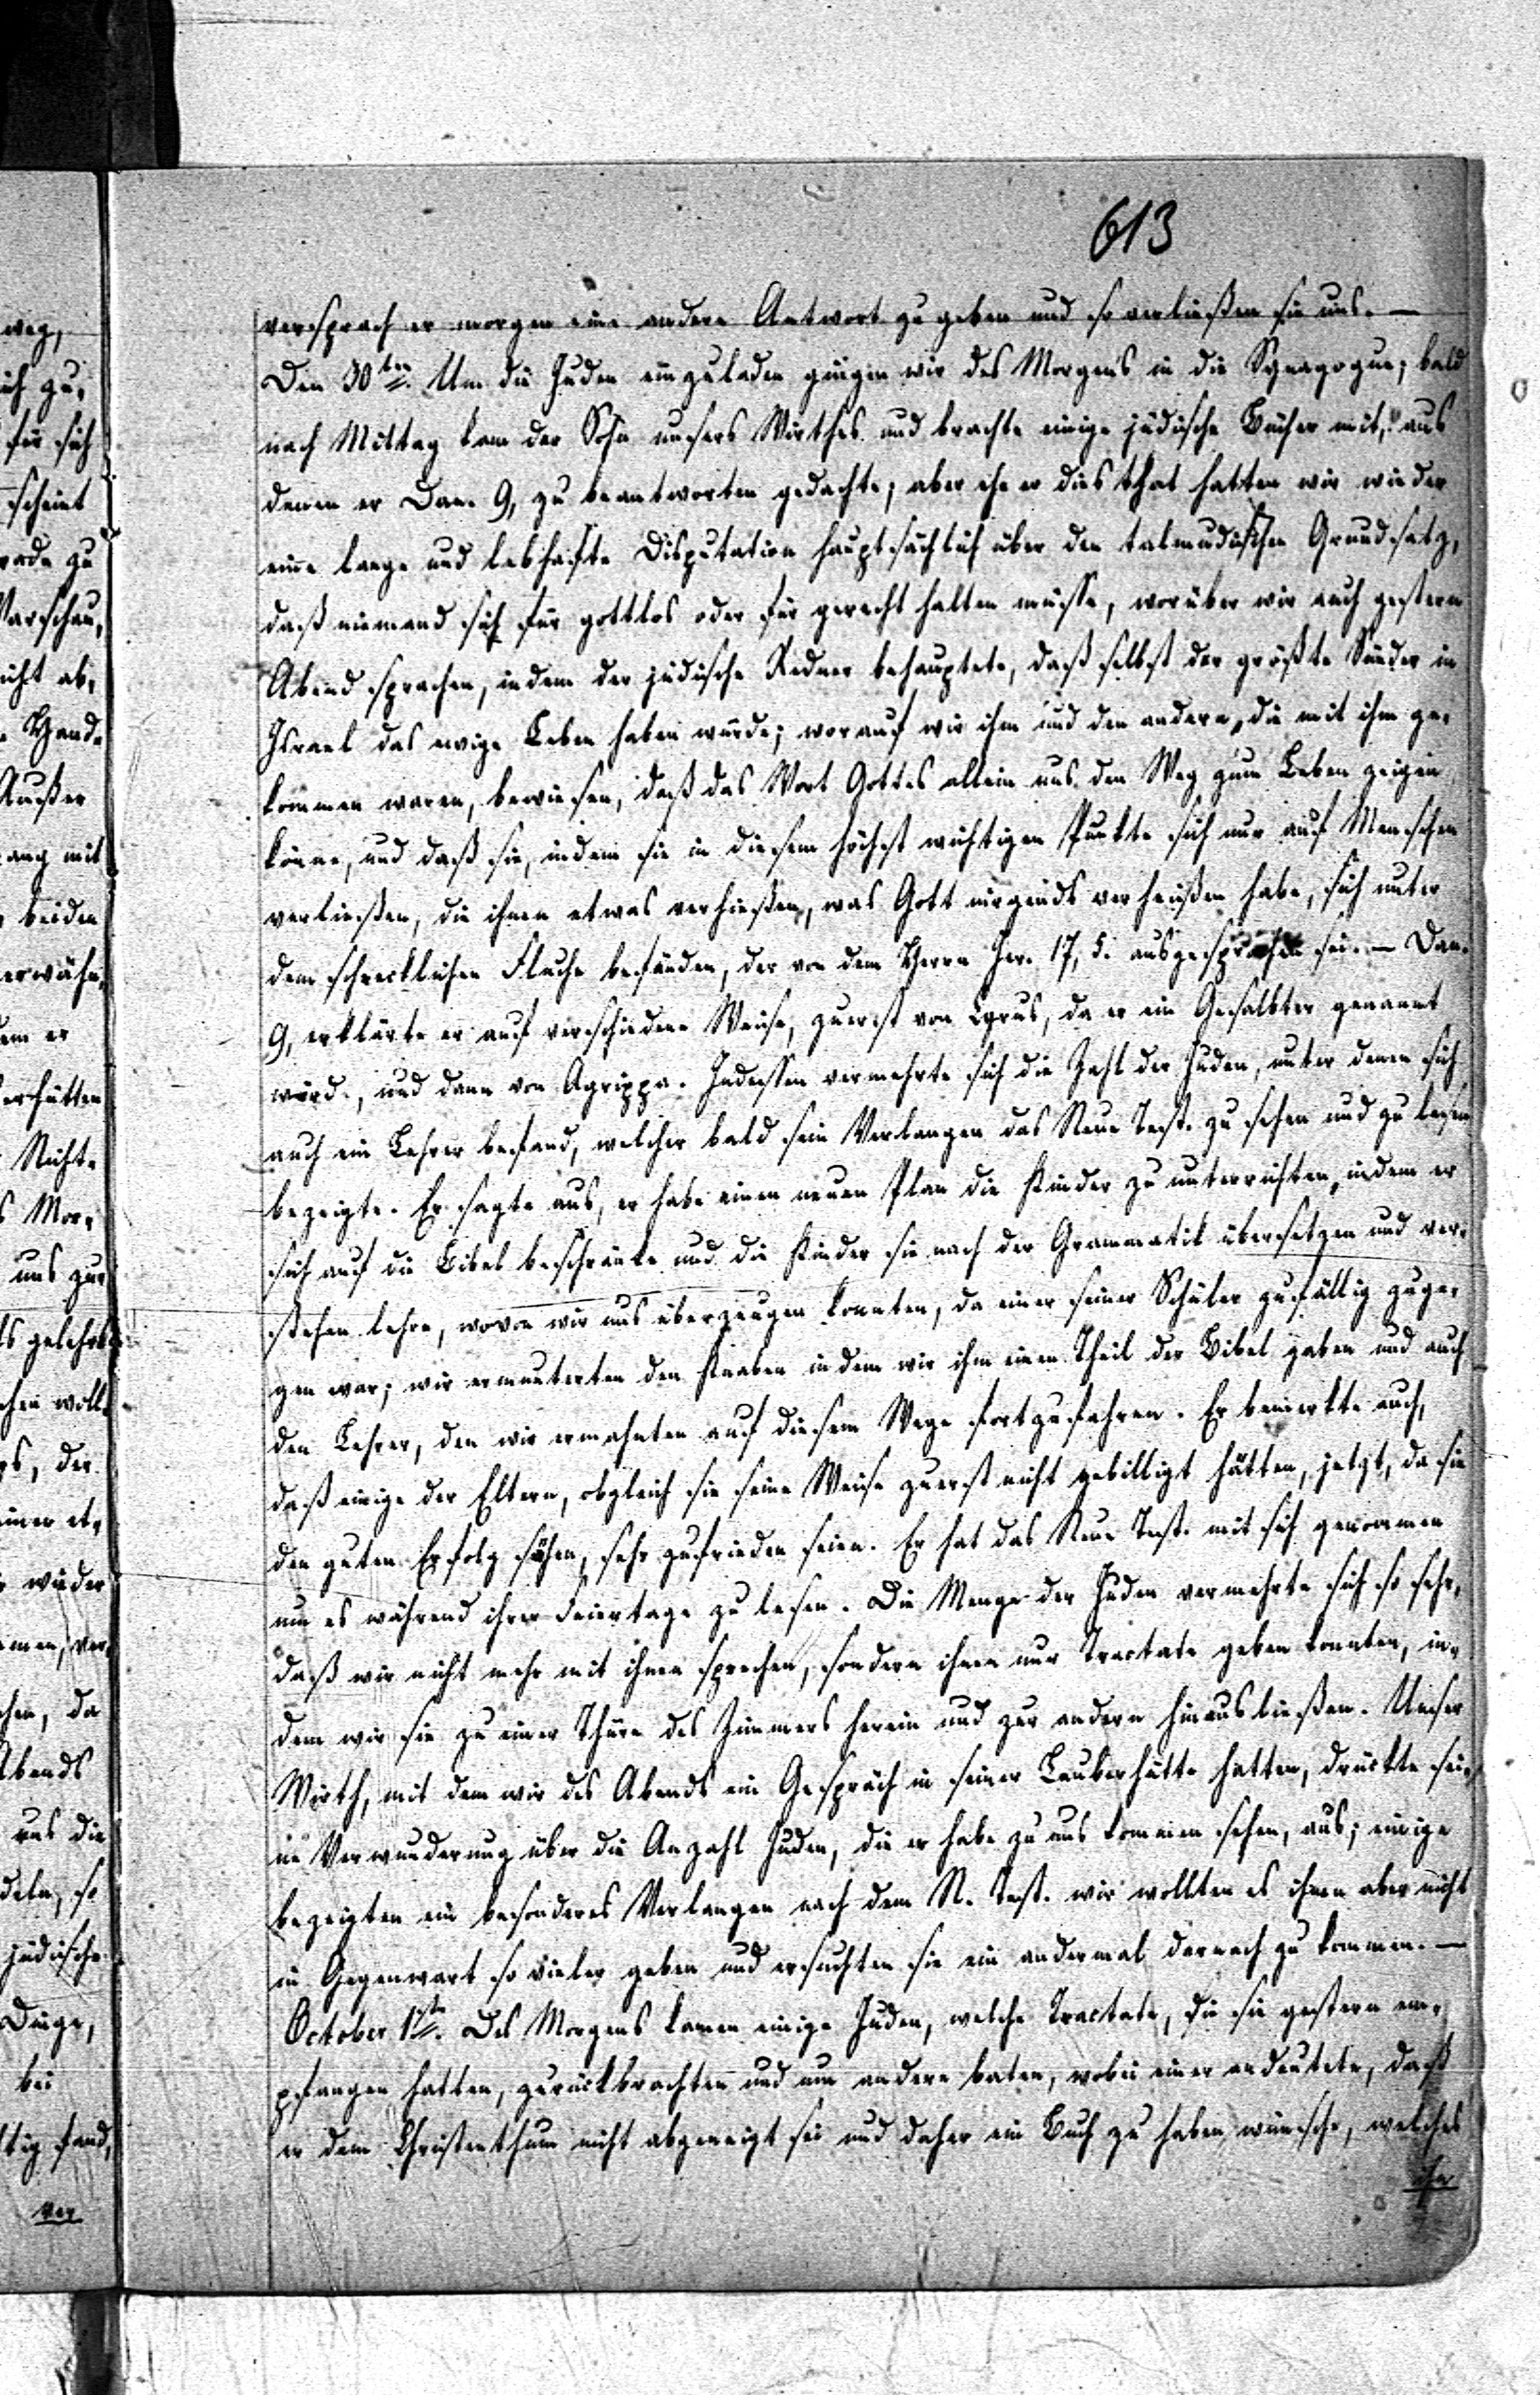 613
weg,
ich zu,
für sich
scheint
rade zu
Warschau,
nicht ab,
Hand,
Außer
ang mit
beiden
erwähn,
dem er
erhütten
Nicht,
s Mor,
uns zur
ls gelehrt
chen woll,
gs, der
einer et,
wieder
men, ver,
hen, da
Abends
uns die
deln, so
jüdische
Dinge,
bei
tig fand,
ver
versprach er morgen eine andere Antwort zu geben und so verließen sie uns. —
Den 30ten. Um die Juden einzuladen gingen wir des Morgens in die Synagogue; bald
nach Mittag kam der Sohn unsers Wirthes und brachte einige jüdische Bücher mit, aus
denen er Dan. 9, zu beantworten gedachte; aber ehe er dies that hatten wir wieder
eine lange und lebhafte Disputation hauptsächlich über den talmudischen Grundsatz,
daß niemand sich für gottlos oder für gerecht halten müsse, worüber wir auch gestern
Abend sprachen, indem der jüdische Redner behauptete, daß selbst der größte Sünder in
Israel das ewige Leben haben würde; worauf wir ihm und den andern, die mit ihm ge,
kommen waren, bewiesen, daß das Wort Gottes allein uns den Weg zum Leben zeigen
könne, und daß sie, indem sie in diesem höchst wichtigen Punkte sich nur auf Menschen
verließen, die ihnen etwas verhießen, was Gott nirgends verheißen habe, sich unter
dem schrecklichen Fluche befänden, der von dem Herrn Jer. 17, 5. ausgesprochen sei. — Dan.
9, erklärte er auf verschiedene Weise, zuerst von Cyrus, da er ein Gesalbter genannt
wird, und dann von Agrippa. Indessen vermehrte sich die Zahl der Juden, unter denen sich
auch ein Lehrer befand, welcher bald sein Verlangen das Neue Test. zu sehen und zu lesen
bezeigte. Er sagte aus, er habe einen neuen Plan die Kinder zu unterrichten, indem er
sich auf die Bibel beschränke und die Kinder sie nach der Grammatik übersetzen und ver,
stehen lehre, wovon wir uns überzeugen konnten, da einer seiner Schüler zufällig zuge,
gen war; wir ermunterten den Knaben indem wir ihm einen Theil der Bibel gaben und auch
den Lehrer, den wir ermahnten auf diesem Wege fortzufahren. Er bemerkte auch,
daß einige der Eltern, obgleich sie seine Weise zuerst nicht gebilligt hätten, jetzt, da sie
den guten Erfolg sähen, sehr zufrieden seien. Er hat das Neue Test. mit sich genommen
um es während ihrer Feiertage zu lesen. Die Menge der Juden vermehrte sich so sehr,
daß wir nicht mehr mit ihnen sprechen, sondern ihnen nur Tractate geben konnten, in,
dem wir sie zu einer Thüre des Zimmers herein und zur andern hinausließen. Unser
Wirth, mit dem wir des Abends ein Gespräch in seiner Lauberhütte hatten, drückte sei,
ne Verwunderung über die Anzahl Juden, die er habe zu uns kommen sehen, aus; einige
bezeigten ein besonderes Verlangen nach dem N. Test. wir wollten es ihnen aber nicht
in Gegenwart so vieler geben und ersuchten sie ein andermal darnach zu kommen. —
October 1ste. Des Morgens kamen einige Juden, welche Tractate, die sie gestern em,
pfangen hatten, zurückbrachten und um andere baten, wobei einer andeutete, daß
er dem Christenthum nicht abgeneigt sei und daher ein Buch zu haben wünsche, welches
ihn